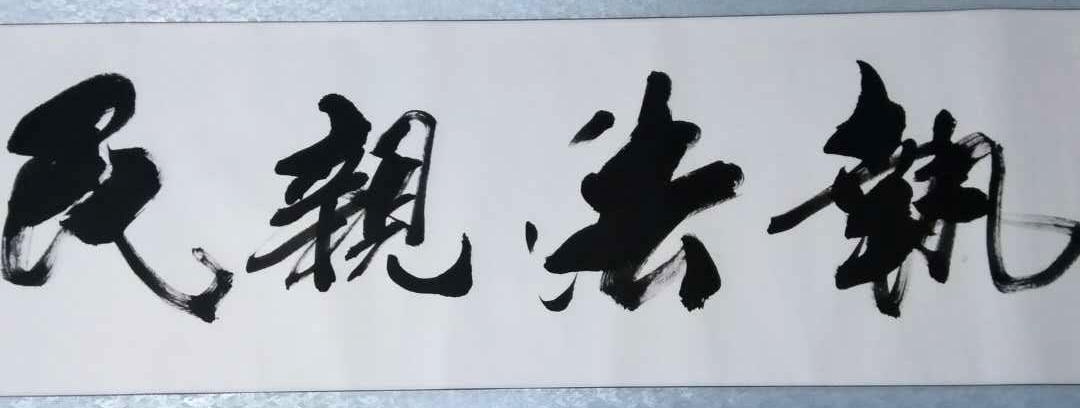 執法親民